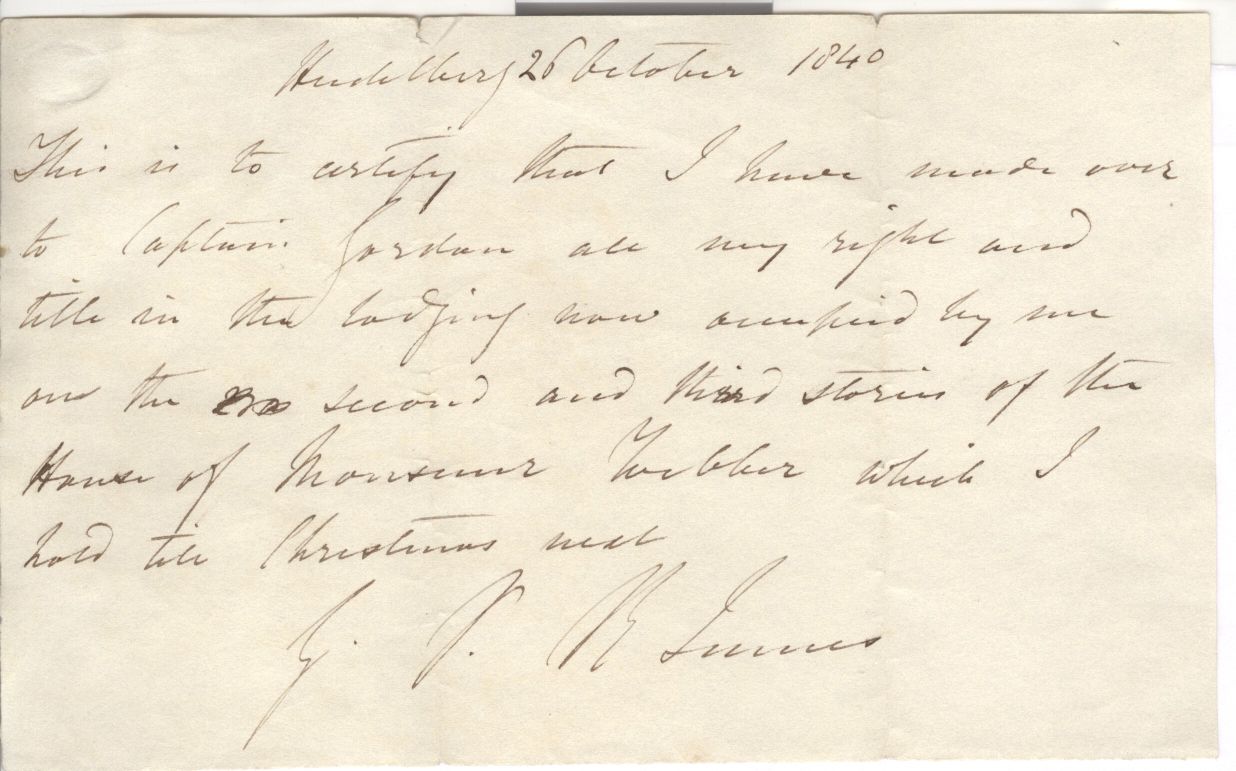 Heidelberg 26 October 1840
This is to certify that I have made over
to Captain Gordon all my right and
title in the lodging now occupied by me
on the second and third stories of the
House of Monsieur Webber which I
hold till Christmas next
G. P. R James